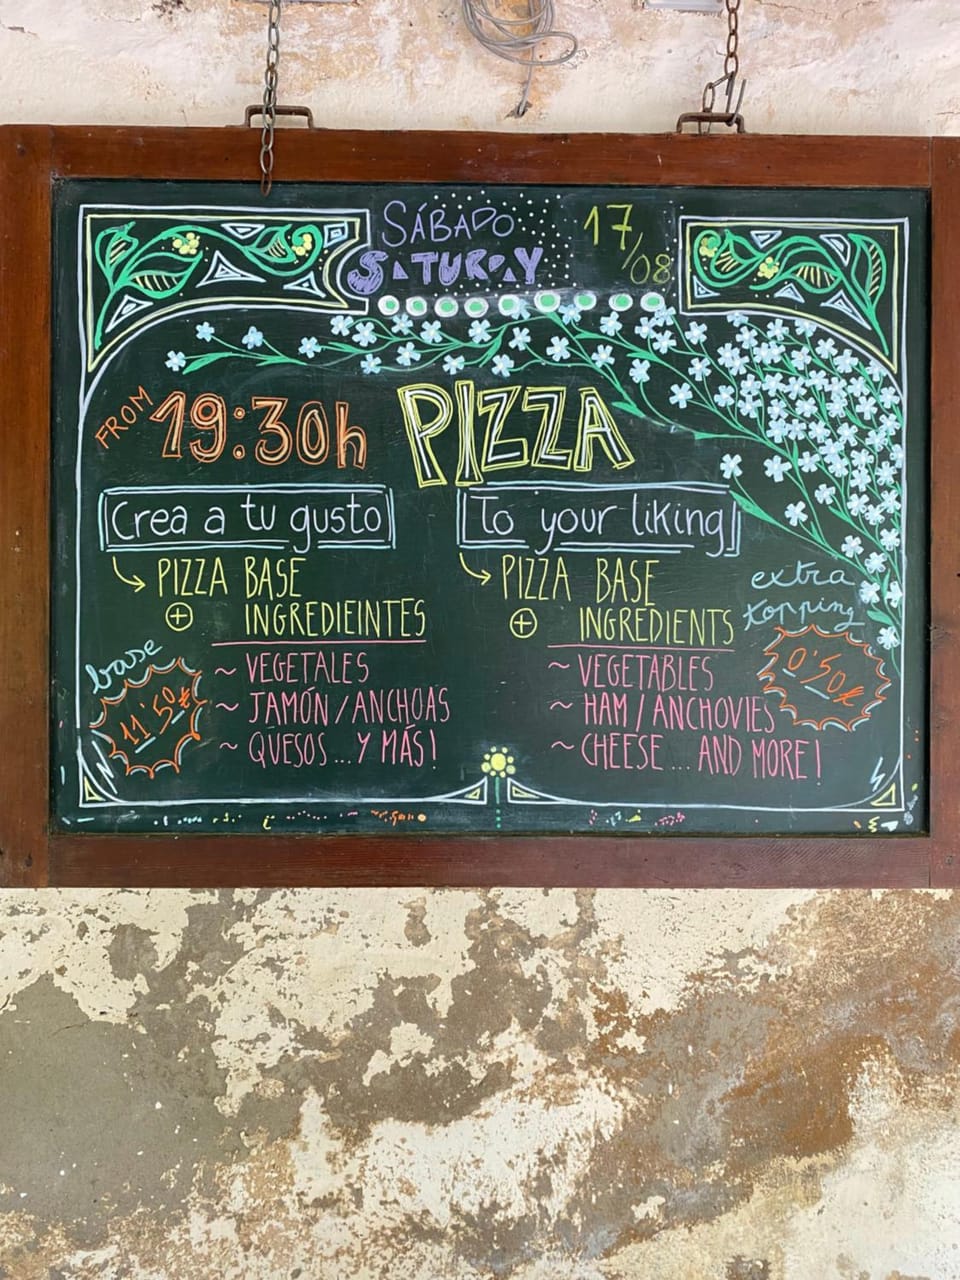 SÁBADO
SATURDAY
17/08
FROM 19:30h
PIZZA
Crea a tu gusto
PIZZA BASE
+ INGREDIEINTES
~ VEGETALES
~ JAMÓN / ANCHOAS
~ QUESOS ... Y MÁS!
base
11'50€
To your liking
PIZZA BASE
+ INGREDIENTS
~ VEGETABLES
~ HAM / ANCHOVIES
~ CHEESE ... AND MORE!
extra
topping
0'50€